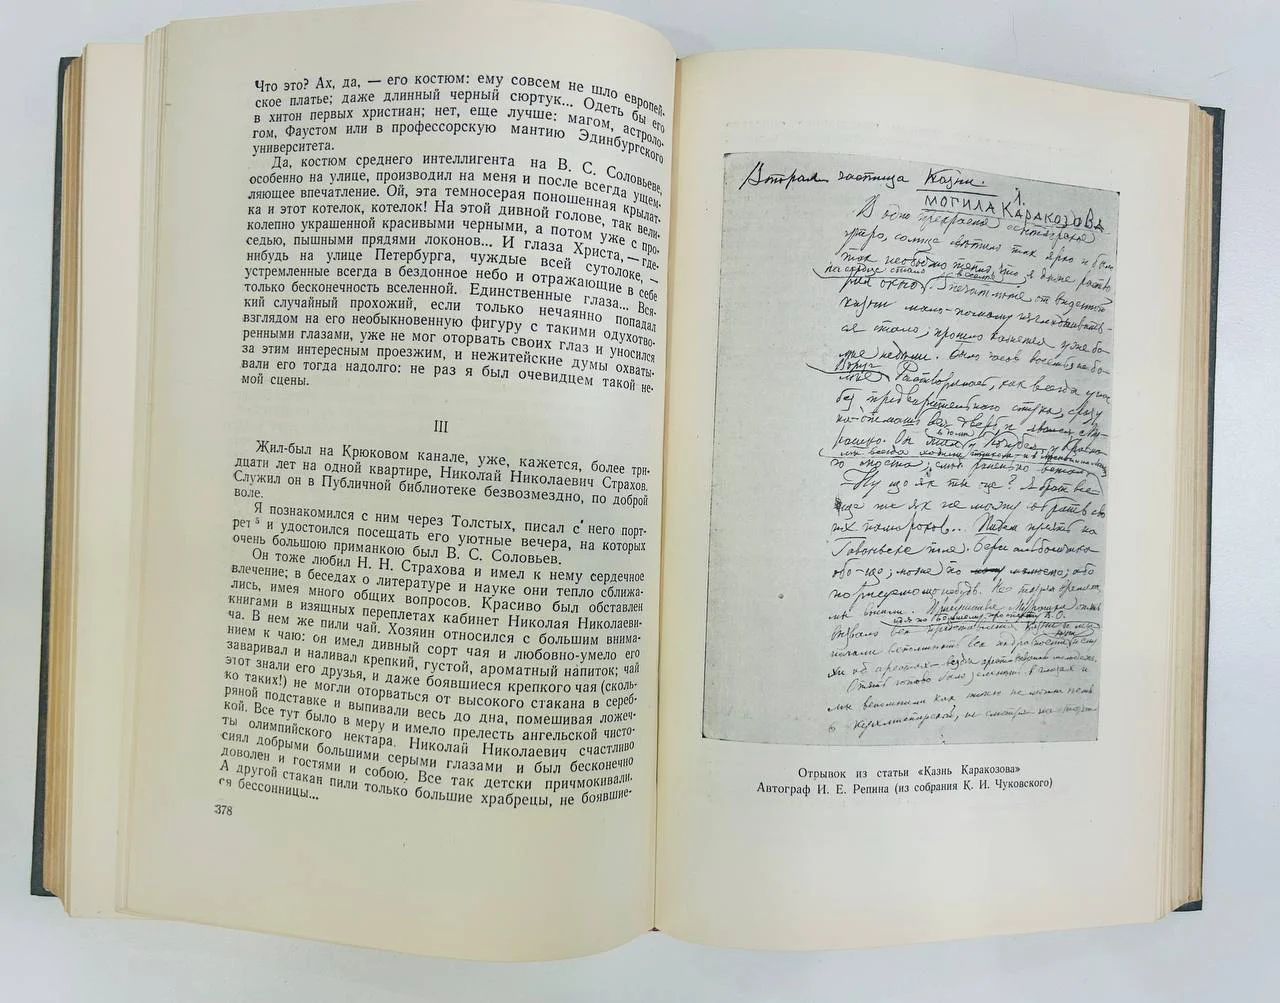 Что это? Ах, да, — его костюм: ему совсем не шло европей-
ское платье; даже длинный черный сюртук... Одеть бы его
в хитон первых христиан; нет, еще лучше: магом, астроло-
гом, Фаустом или в профессорскую мантию Эдинбургского
университета.
Да, костюм среднего интеллигента на В. С. Соловьеве,
особенно на улице, производил на меня и после всегда ущем-
ляющее впечатление. Ой, эта темносерая поношенная крылат-
ка и этот котелок, котелок! На этой дивной голове, так вели-
колепно украшенной красивыми черными, а потом уже с про-
седью, пышными прядями локонов... И глаза Христа, — где-
нибудь на улице Петербурга, чуждые всей сутолоке, —
устремленные всегда в бездонное небо и отражающие в себе
только бесконечность вселенной. Единственные глаза... Вся-
кий случайный прохожий, если только нечаянно попадал
взглядом на его необыкновенную фигуру с такими одухотво-
ренными глазами, уже не мог оторвать своих глаз и уносился
за этим интересным проезжим, и нежитейские думы охваты-
вали его тогда надолго: не раз я был очевидцем такой не-
мой сцены.
III
Жил-был на Крюковом канале, уже, кажется, более трид-
дцати лет на одной квартире, Николай Николаевич Страхов.
Служил он в Публичной библиотеке безвозмездно, по доброй
воле.
Я познакомился с ним через Толстых, писал с него порт-
рет ⁵ и удостоился посещать его уютные вечера, на которых
очень большою приманкою был В. С. Соловьев.
Он тоже любил Н. Н. Страхова и имел к нему сердечное
влечение; в беседах о литературе и науке они тепло сближа-
лись, имея много общих вопросов. Красиво был обставлен
книгами в изящных переплетах кабинет Николая Николаеви-
ча. В нем же пили чай. Хозяин относился с большим внима-
нием к чаю: он имел дивный сорт чая и любовно-умело его
заваривал и наливал крепкий, густой, ароматный напиток; чай
этот знали его друзья, и даже боявшиеся крепкого чая (сколь-
ко таких!) не могли оторваться от высокого стакана в сереб-
ряной подставке и выпивали весь до дна, помешивая ложеч-
кой. Все тут было в меру и имело прелесть ангельской чисто-
ты олимпийского нектара. Николай Николаевич счастливо
сиял добрыми большими серыми глазами и был бесконечно
доволен и гостями и собою. Все так детски причмокивали.
А другой стакан пили только большие храбрецы, не боявшие-
ся бессонницы...
378
Вторая частица Казни.
1.
МОГИЛА КАРАКОЗОВА
В одно прекрасное сентябрьское
утро, солнце светило так ярко и было
так необыкновенно тепло, что я даже раство
рил окно. Впечатление от виденной
казни мало-помалу изглаживать-
ся стало; прошло кажется уже бо
лее недели. Около часов восьми не бо-
Вдруг
лее Растворяется, как всегда у нас
без предварительного стука, сразу
Отрывок из статьи «Казнь Каракозова»
Автограф И. Е. Репина (из собрания К. И. Чуковского)